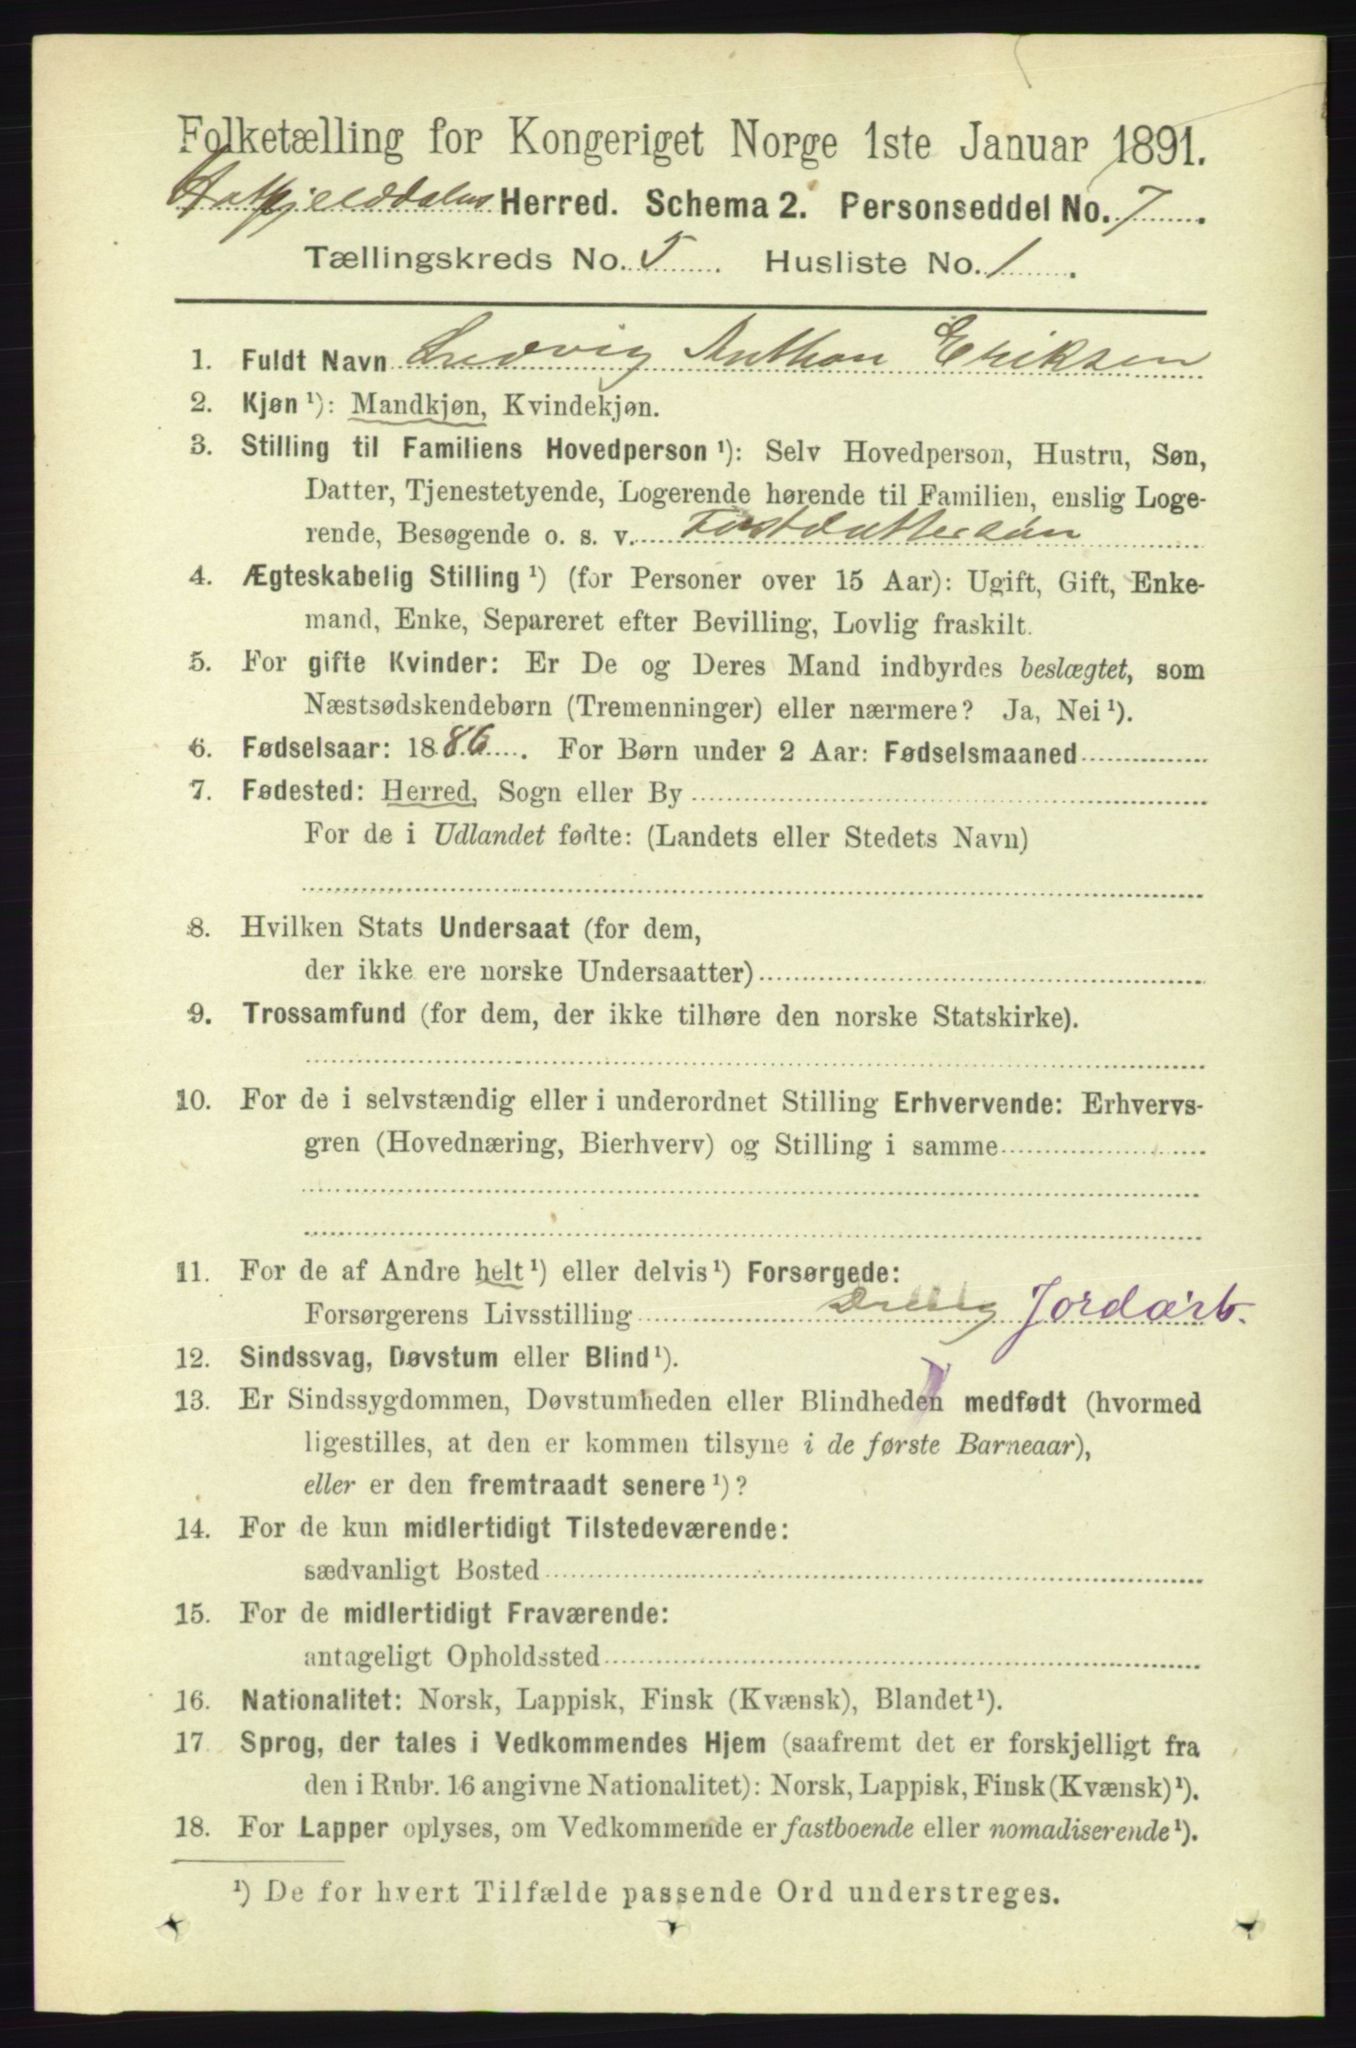 Folketælling for Kongeriget Norge 1ste Januar 1891.
Hatfjelddalens Herred. Schema 2. Personseddel No. 7
Tællingskreds No. 5 Husliste No. 1
1. Fuldt Navn Ludvig Anthon Eriksen
2. Kjøn ¹): Mandkjøn, Kvindekjøn.
3. Stilling til Familiens Hovedperson ¹): Selv Hovedperson, Hustru, Søn,
Datter, Tjenestetyende, Logerende hørende til Familien, enslig Loge-
rende, Besøgende o. s. v. Fostdattersøn
4. Ægteskabelig Stilling ¹) (for Personer over 15 Aar): Ugift, Gift, Enke-
mand, Enke, Separeret efter Bevilling, Lovlig fraskilt.
5. For gifte Kvinder: Er De og Deres Mand indbyrdes beslægtet, som
Næstsødskendebørn (Tremenninger) eller nærmere? Ja, Nei ¹).
6. Fødselsaar: 1886. For Børn under 2 Aar: Fødselsmaaned
7. Fødested: Herred, Sogn eller By
For de i Udlandet fødte: (Landets eller Stedets Navn)
8. Hvilken Stats Undersaat (for dem,
der ikke ere norske Undersaatter)
9. Trossamfund (for dem, der ikke tilhøre den norske Statskirke).
10. For de i selvstændig eller i underordnet Stilling Erhvervende: Erhvervs-
gren (Hovednæring, Bierhverv) og Stilling i samme
11. For de af Andre helt ¹) eller delvis ¹) Forsørgede:
Forsørgerens Livsstilling Jordarb.
12. Sindssvag, Døvstum eller Blind ¹).
13. Er Sindssygdommen, Døvstumheden eller Blindheden medfødt (hvormed
ligestilles, at den er kommen tilsyne i de første Barneaar),
eller er den fremtraadt senere ¹)?
14. For de kun midlertidigt Tilstedeværende:
sædvanligt Bosted
15. For de midlertidigt Fraværende:
antageligt Opholdssted
16. Nationalitet: Norsk, Lappisk, Finsk (Kvænsk), Blandet ¹).
17 Sprog, der tales i Vedkommendes Hjem (saafremt det er forskjelligt fra
den i Rubr. 16 angivne Nationalitet): Norsk, Lappisk, Finsk (Kvænsk) ¹).
18. For Lapper oplyses, om Vedkommende er fastboende eller nomadiserende ¹).
¹) De for hvert Tilfælde passende Ord understreges.